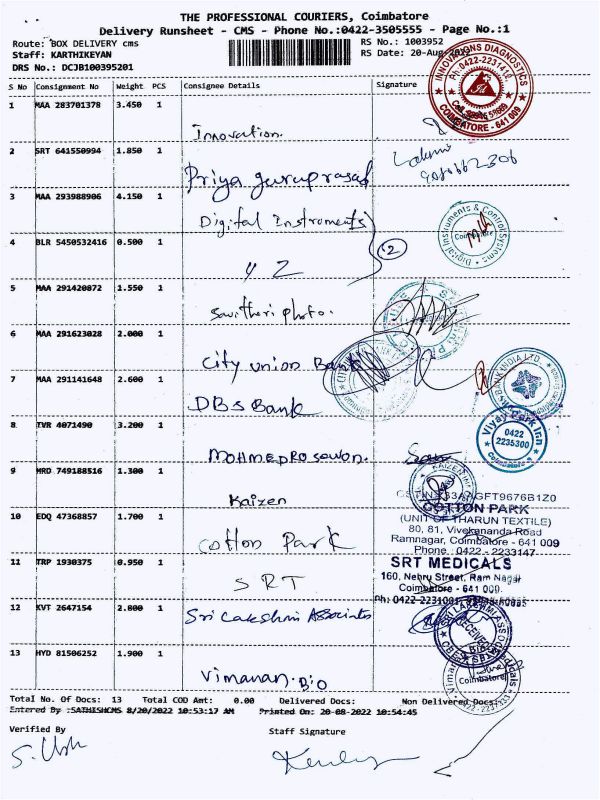 THE PROFESSIONAL COURIERS, Coimbatore
Delivery Runsheet - CMS - Phone No.:0422-3505555 - Page No.:1
Route: BOX DELIVERY cms RS No.: 1003952
Staff: KARTHIKEYAN RS Date: 20-Aug-2022
DRS No.: DCJB100395201
S No Consignment No Weight PCS Consignee Details Signature
1 MAA 283701378 3.450 1
Innovation.
INNOVATIONS DIAGNOSTICS
COIMBATORE - 641 009
2 SRT 641550994 1.850 1
Priya guruprasad
3 MAA 293988906 4.150 1
Digital Instroments
Digital Instruments & Control Systems
Coimbatore
4 BLR 5450532416 0.500 1
2
5 MAA 291420872 1.550 1
Savitheri photo.
6 MAA 291623028 2.000 1
City union Bank
7 MAA 291141648 2.600 1
DBS Bank
BANK INDIA LTD.
8 TVR 4071490 3.200 1
Vijay Park Inn
0422
2235300
Coimbatore
9 MRD 749188516 1.300 1
Kaizen
KAIZEN
10 EDQ 47368857 1.700 1
Cotton Park
COTTON PARK
(UNIT OF THARUN TEXTILE)
80, 81, Vivekananda Road
Ramnagar, Coimbatore - 641 009
Phone : 0422 - 2233147
11 TRP 1930375 0.950 1
SRT
SRT MEDICALS
160, Nehru Street, Ram Nagar
Coimbatore - 641 009.
12 KVT 2647154 2.800 1
Sri Lakshmi Associates
13 HYD 81506252 1.900 1
Vimanan. Bio
Coimbatore
Total No. Of Docs: 13 Total COD Amt: 0.00 Delivered Docs: Non Delivered Docs:
Entered By :SATHISHCMS 8/20/2022 10:53:17 AM Printed On: 20-08-2022 10:54:45
Verified By Staff Signature